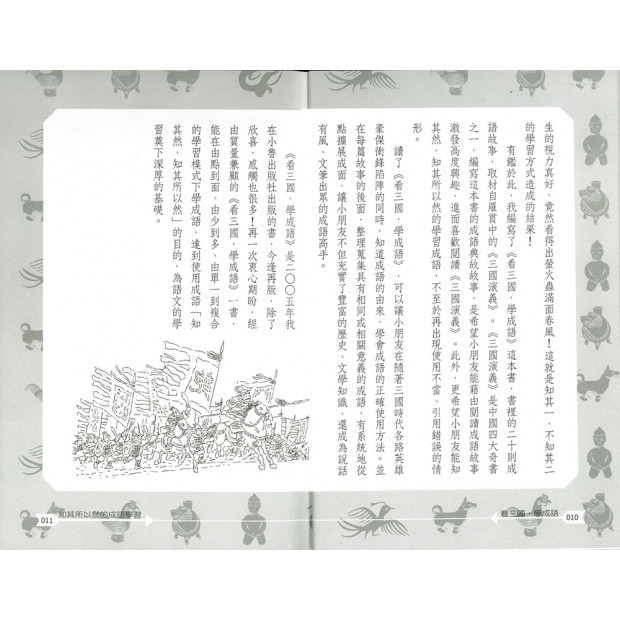 生的視力真好，竟然看得出螢火蟲滿面春風！這就是知其一，不知其二
的學習方式造成的結果！
有鑑於此，我編寫了《看三國，學成語》這本書，書裡的二十則成
語故事，取材自羅貫中的《三國演義》。《三國演義》是中國四大奇書
之一，編寫這本書的成語典故故事，是希望小朋友能藉由閱讀成語故事
激發高度興趣，進而喜歡閱讀《三國演義》。此外，更希望小朋友能知
其然，知其所以然的學習成語，不至於再出現使用不當、引用錯誤的情
形。
讀了《看三國，學成語》，可以讓小朋友在隨著三國時代各路英雄
豪傑衝鋒陷陣的同時，知道成語的由來，學會成語的正確使用方法。並
在每篇故事的後面，整理蒐集具有相同或相關意義的成語，有系統地從
點擴展成面，讓小朋友不但充實了豐富的歷史、文學知識，還成為說話
有風、文筆出眾的成語高手。
《看三國，學成語》是二〇〇五年我
在小魯出版社出版的書，今逢再版，除了
欣喜，感觸也很多！再一次衷心期盼，經
由質量兼顧的《看三國，學成語》一書，
能在由點到面、由少到多、由單一到複合
的學習模式下學成語，達到使用成語「知
其然，知其所以然」的目的，為語文的學
習奠下深厚的基礎。
看三國，學成語
010
知其所以然的成語學習
011